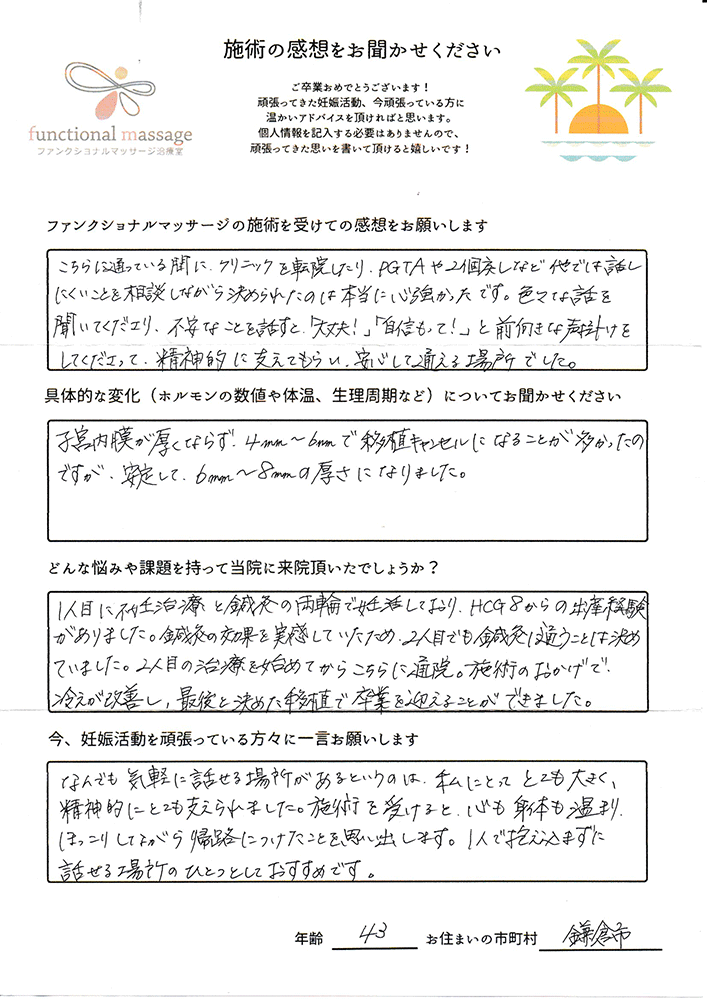 施術の感想をお聞かせください
functional massage
ファンクショナルマッサージ治療室
ご卒業おめでとうございます！
頑張ってきた妊娠活動、今頑張っている方に
温かいアドバイスを頂ければと思います。
個人情報を記入する必要はありませんので、
頑張ってきた思いを書いて頂けると嬉しいです！
ファンクショナルマッサージの施術を受けての感想をお願いします
こちらに通っている間に、クリニックを転院したり、PGTAや2個戻しなど他では話し
にくいことを相談しながら決められたのは本当に心強かったです。色々な話を
聞いてくださり、不安なことを話すと、「大丈夫！」「自信もって！」と前向きな声掛けを
してくださって、精神的に支えてもらい、安心して通える場所でした。
具体的な変化（ホルモンの数値や体温、生理周期など）についてお聞かせください
子宮内膜が厚くならず、4mm～6mmで移植キャンセルになることが多かったの
ですが、安定して、6mm～8mmの厚さになりました。
どんな悩みや課題を持って当院に来院頂いたでしょうか？
1人目に不妊治療と鍼灸の両輪で妊活しており、HCG8からの出産経験
がありました。鍼灸の効果を実感していたため、2人目でも鍼灸は通うことは決め
ていました。2人目の治療を始めてからこちらに通院。施術のおかげで、
冷えが改善し、最後と決めた移植で卒業を迎えることができました。
今、妊娠活動を頑張っている方々に一言お願いします
なんでも気軽に話せる場所があるというのは、私にとってとても大きく、
精神的にとても支えられました。施術を受けると、心も身体も温まり、
ほっこりしながら帰路につけたことを思い出します。1人で抱え込まずに
話せる場所のひとつとしておすすめです。
年齢 43 お住まいの市町村 鎌倉市